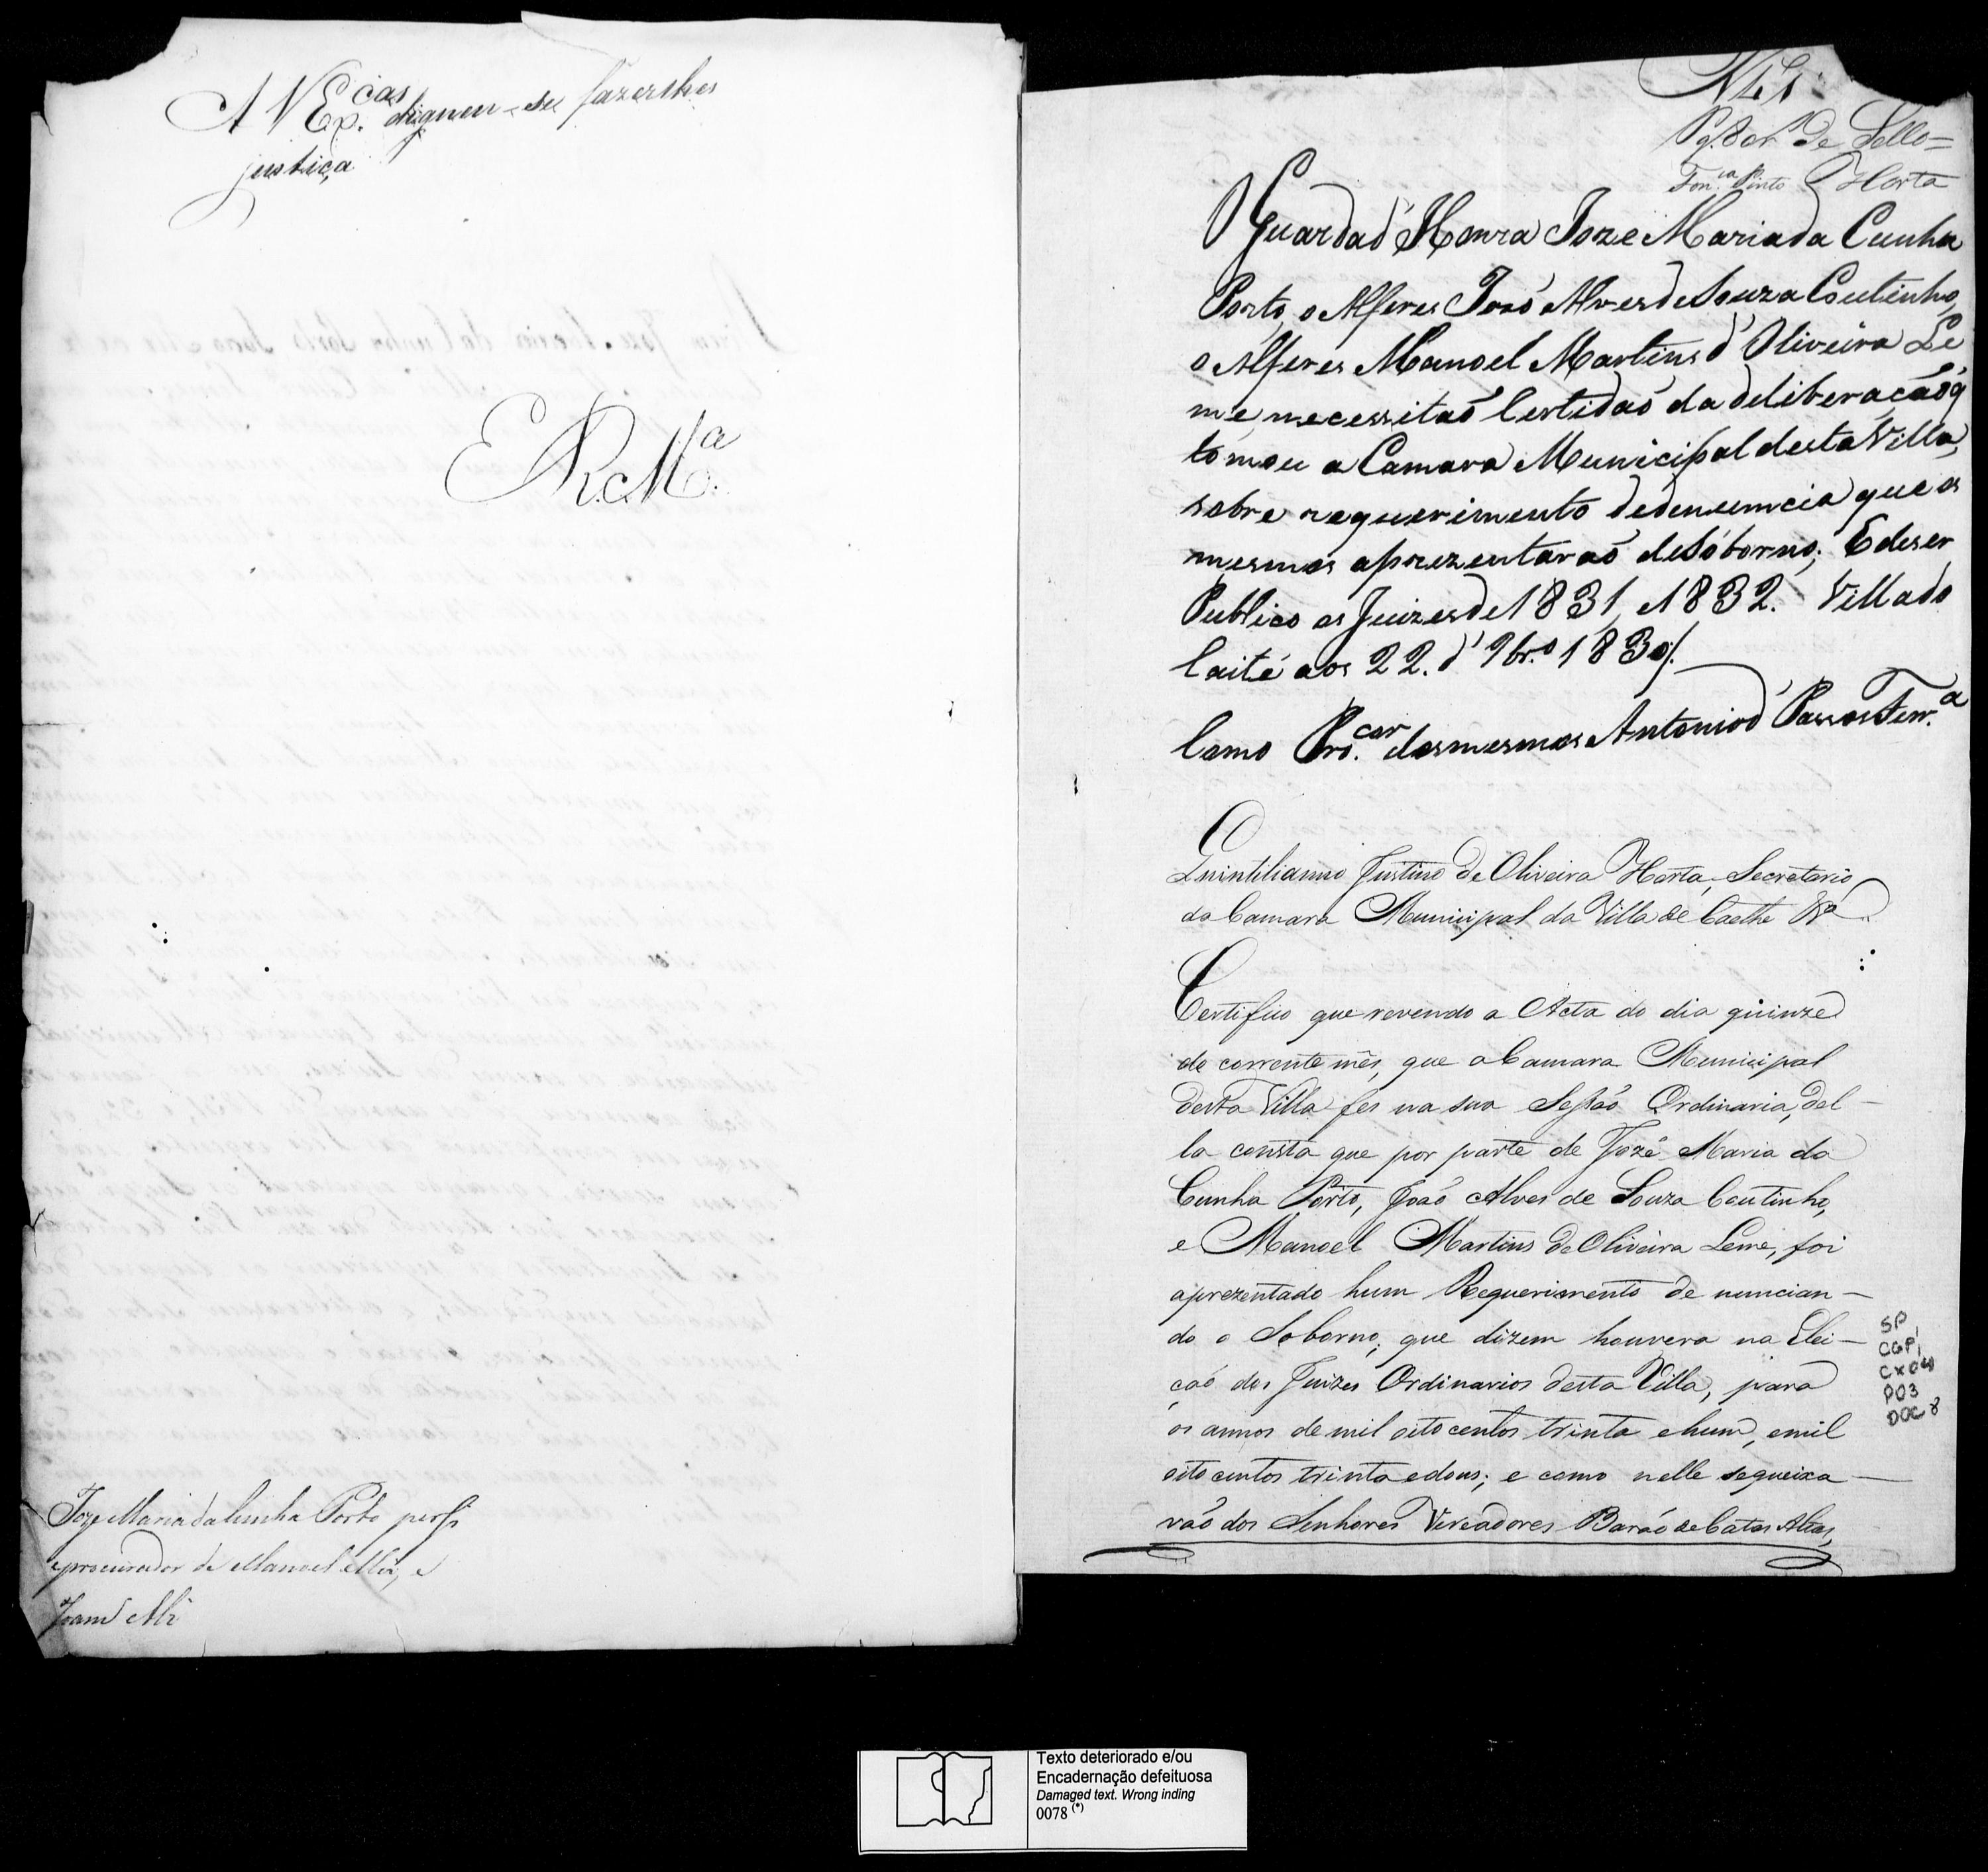 A VEx.cas dignem-se fazerlhes
justiça
E R. Mce
Joze Maria da Cunha Porto por si
e procurador de Manoel Miz, e
Joam Alz
N.º 1
Pg. 80 r. de Sello=
Fon.ca Pinto Horta
O Guarda d'Honra Joze Maria da Cunha
Porto, o Alferes Joaó Alves de Souza Coutinho,
o Alferes Manoel Martins d'Oliveira Le
me necessitaó Certidaó da deliberacaó q'
tomou a Camara Municipal desta Villa,
sobre requerimento de denuncia que os
mesmos aprezentaraó de Sóborno; E de ser
Publico os Juizes de 1831, e 1832. Villa do
Caité aos 22. d' 9br.o 1830/.
Como Pro.cor dos mesmos Antonio d' Passos Ferr.a
Quintilianno Justino de Oliveira Horta, Secretario
da Camara Municipal da Villa de Caethe &a
Certifico que revendo a Acta do dia quinze
do corrente mês, que a Camara Municipal
desta Villa fes na sua Sessaó Ordinaria, del-
la consta que por parte de Jozé Maria da
Cunha Porto, Joaó Alves de Souza Coutinho,
e Manoel Martins de Oliveira Leme, foi
aprezentado hum Requerimento de nuncian-
do o Soborno, que dizem houvera na Elei-
çaó dos Juizes Ordinarios desta Villa, para
os annos de mil oito centos trinta e hum, e mil
oito centos trinta e dous; e como nelle se queixa-
vaó dos Senhores Vereadores Baraó de Catas Altas,
SP
CGP1
CX04
P03
DOC 8
Texto deteriorado e/ou
Encadernação defeituosa
Damaged text. Wrong inding
0078 (*)